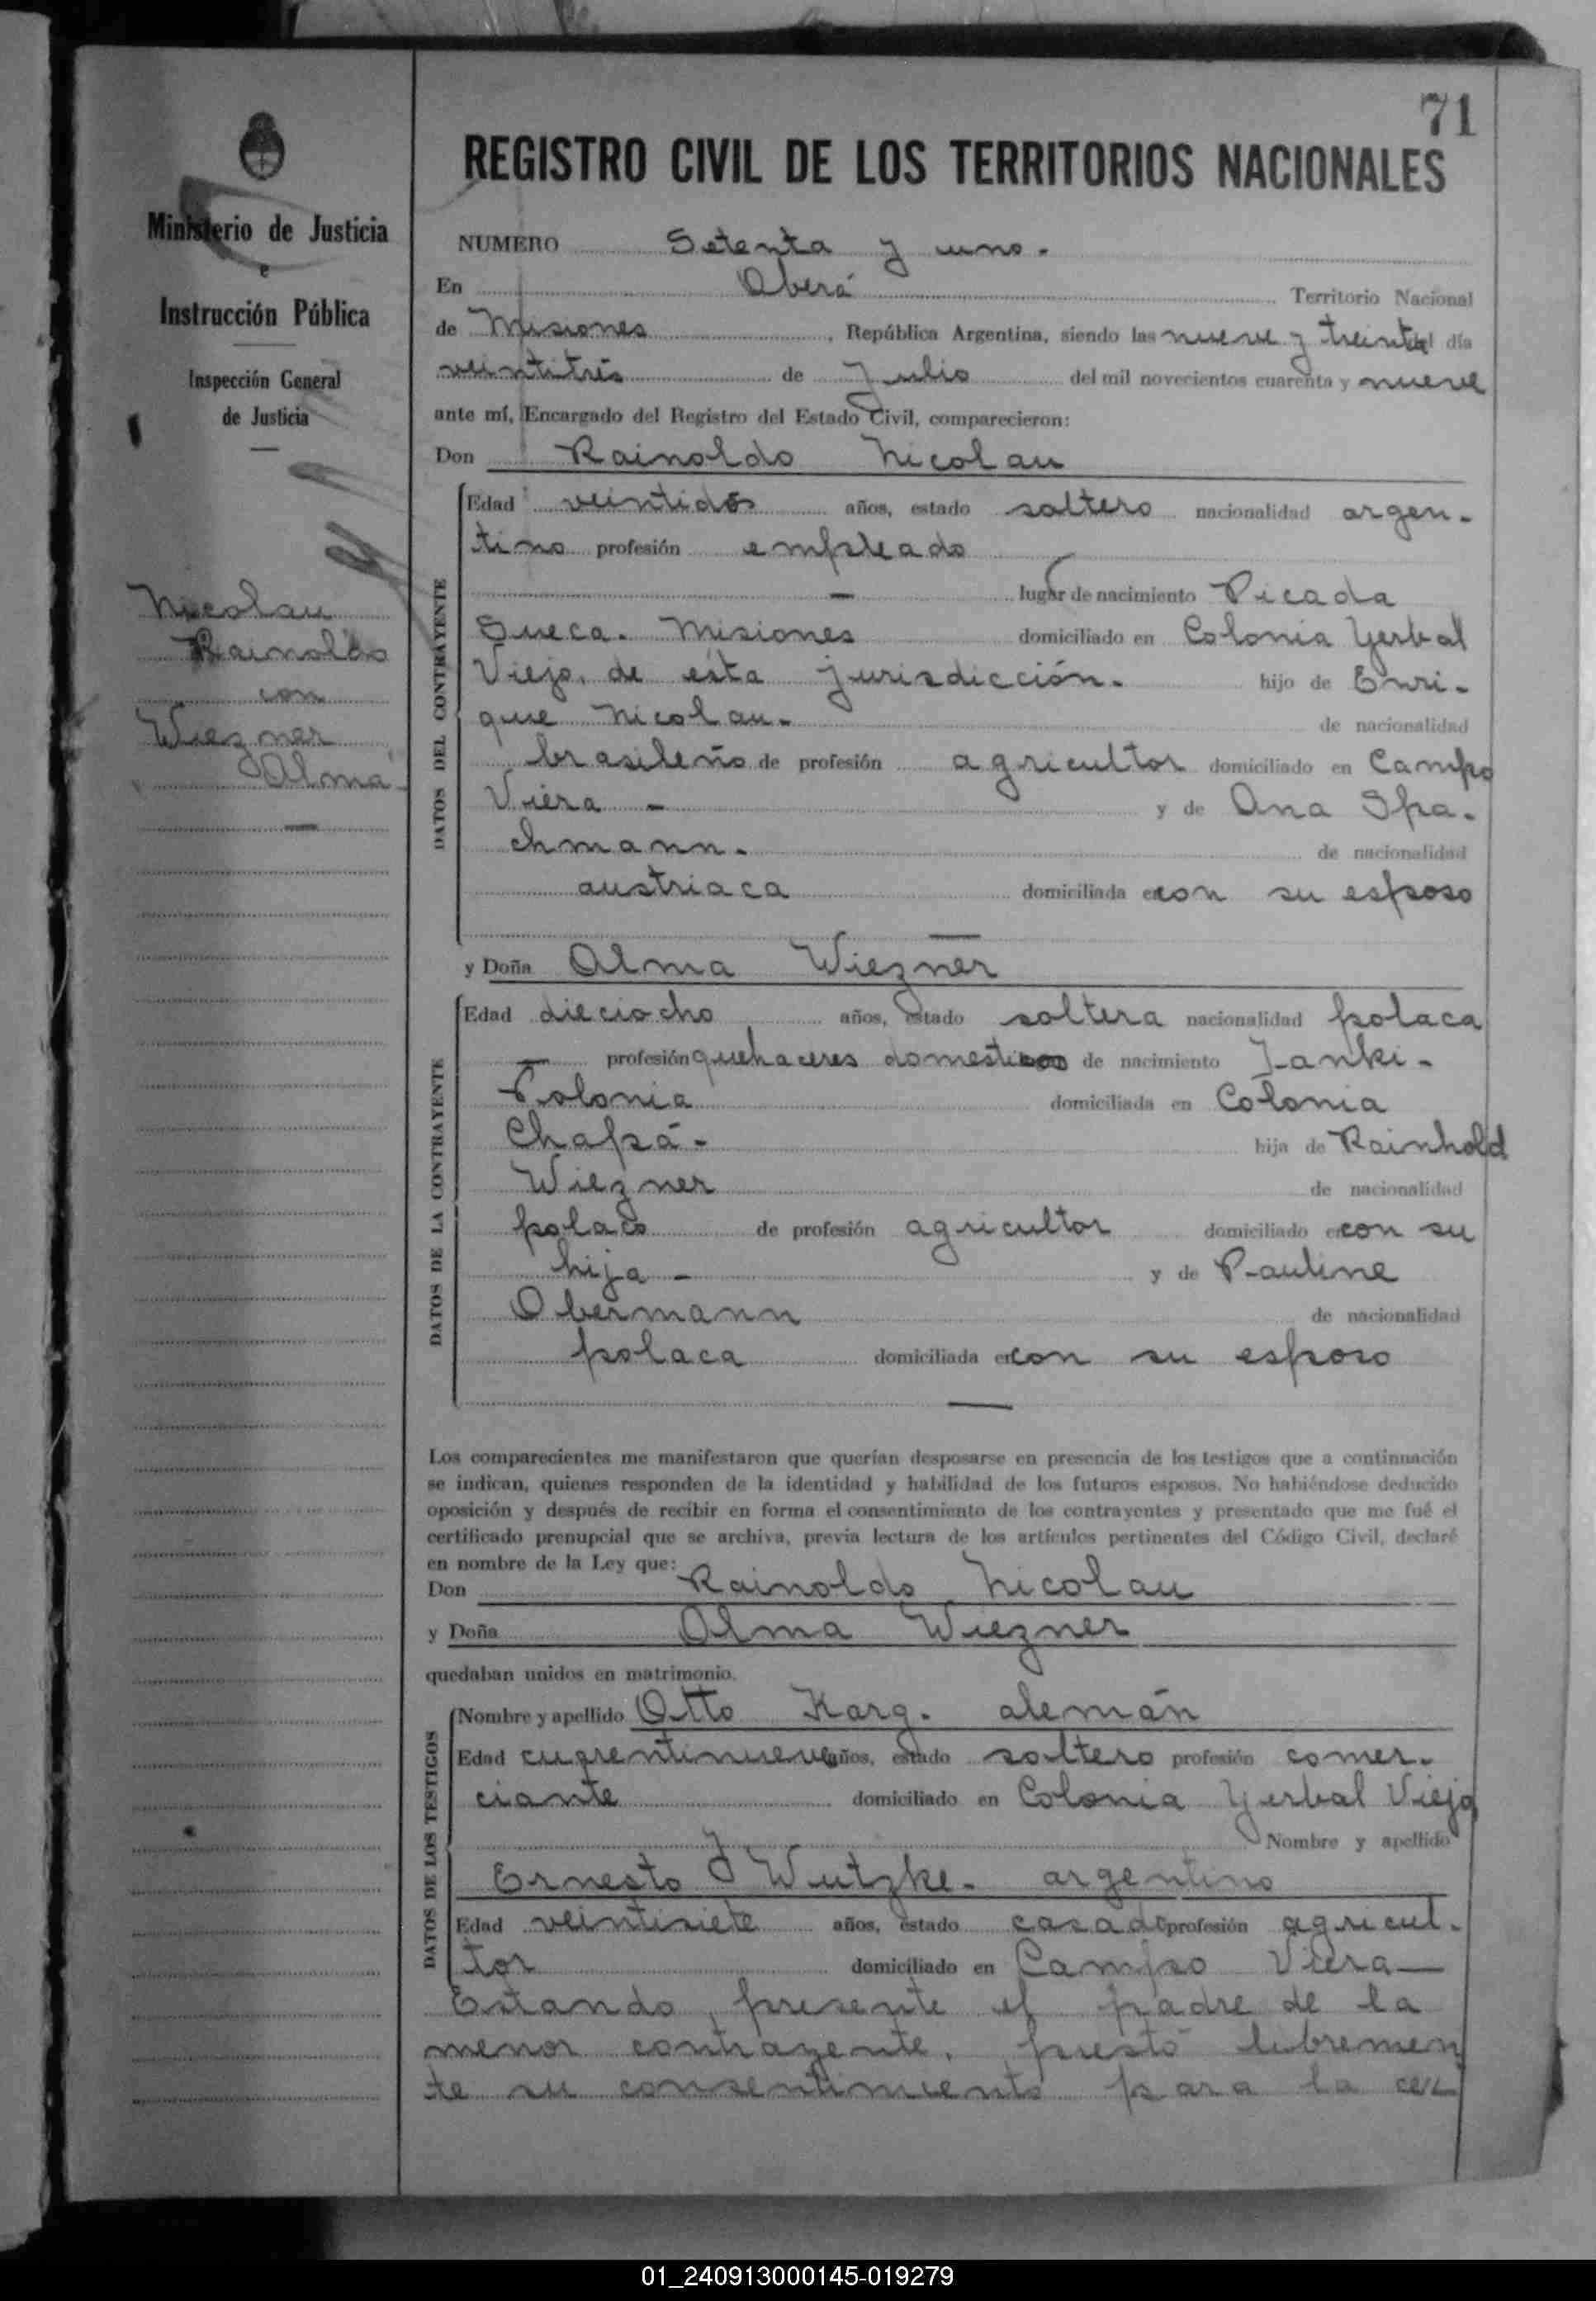 71
REGISTRO CIVIL DE LOS TERRITORIOS NACIONALES
Ministerio de Justicia
e
Instrucción Pública
Inspección General
de Justicia
Nicolau
Rainoldo
con
Wiezner
Alma
NUMERO Setenta y uno.
En Oberá Territorio Nacional
de Misiones, República Argentina, siendo las nueve y treinta del día
veintitrés de Julio del mil novecientos cuarenta y nueve
ante mí, Encargado del Registro del Estado Civil, comparecieron:
Don Rainoldo Nicolau
DATOS DEL CONTRAYENTE
Edad veintidós años, estado soltero nacionalidad argen-
tino profesión empleado
— lugar de nacimiento Picada
Sueca. Misiones domiciliado en Colonia Yerbal
Viejo, de esta jurisdicción. hijo de Enri-
que Nicolau. de nacionalidad
brasileño de profesión agricultor domiciliado en Campo
Viera - y de Ana Spa-
chmann. de nacionalidad
austriaca domiciliada en con su esposo
—
y Doña Alma Wiezner
DATOS DE LA CONTRAYENTE
Edad dieciocho años, estado soltera nacionalidad polaca
— profesión quehaceres domesticos de nacimiento Janki-
Polonia domiciliada en Colonia
Chapá- hija de Rainhold
Wiezner de nacionalidad
polaco de profesión agricultor domiciliado en con su
hija - y de Pauline
Obermann de nacionalidad
polaca domiciliada en con su esposo
—
Los comparecientes me manifestaron que querían desposarse en presencia de los testigos que a continuación
se indican, quienes responden de la identidad y habilidad de los futuros esposos. No habiéndose deducido
oposición y después de recibir en forma el consentimiento de los contrayentes y presentado que me fué el
certificado prenupcial que se archiva, previa lectura de los artículos pertinentes del Código Civil, declaré
en nombre de la Ley que:
Don Rainoldo Nicolau
y Doña Alma Wiezner
quedaban unidos en matrimonio.
DATOS DE LOS TESTIGOS
Nombre y apellido Otto Karg. alemán
Edad cuarentinueve años, estado soltero profesión comer-
ciante domiciliado en Colonia Yerbal Viejo
Nombre y apellido
Ernesto J Wutzke. argentino
Edad veintisiete años, estado casado profesión agricul-
tor domiciliado en Campo Viera—
Estando presente el padre de la
menor contrayente, prestó libremen
te su consentimiento para la cel
01_240913000145-019279